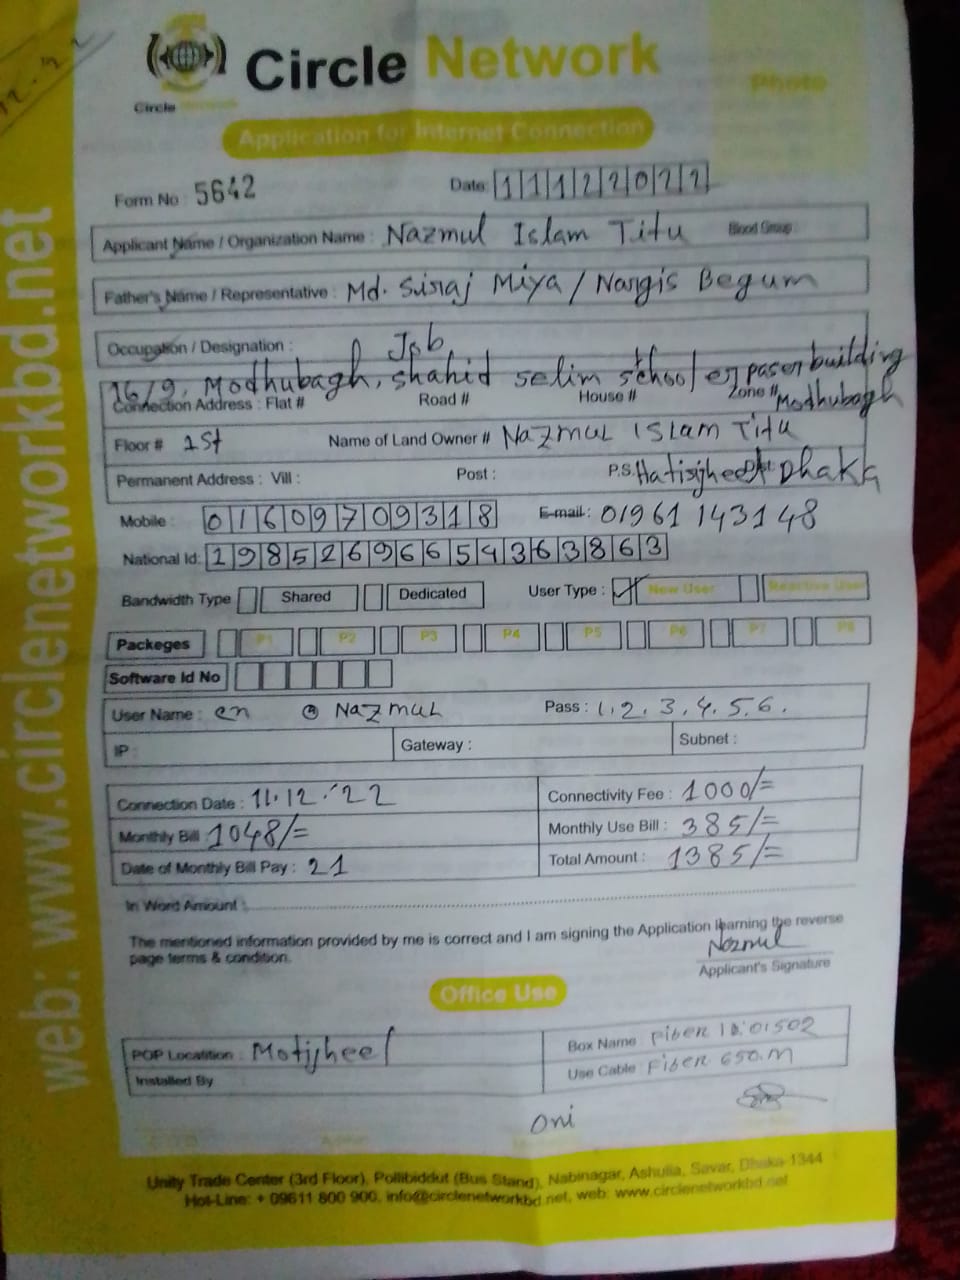 Circle Network
Circle Network
Photo
Application for Internet Connection
Form No : 5642 Date: 11122022
Applicant Name / Organization Name : Nazmul Islam Titu Blood Group :
Father's Name / Representative : Md. Siraj Miya / Nargis Begum
Occupation / Designation : Job
16/9, Modhubagh, shahid selim school er paser building
Connection Address : Flat # Road # House # Zone # Modhubagh
Floor # 1st Name of Land Owner # Nazmul Islam Titu
Permanent Address : Vill : Post : P.S. Hatirjheel Dhaka
Mobile : 01609709318 E-mail : 01961 143148
National Id: 19852696654363863
Bandwidth Type Shared Dedicated User Type : New User Reactive User
Packeges P1 P2 P3 P4 P5 P6 P7 P8
Software Id No
User Name : cn @ Nazmul Pass : 1.2.3.4.5.6.
IP : Gateway : Subnet :
Connection Date : 11.12.'22 Connectivity Fee : 1000/=
Monthly Bill 1048/= Monthly Use Bill : 385/=
Date of Monthly Bill Pay : 21 Total Amount : 1385/=
In Word Amount :
The mentioned information provided by me is correct and I am signing the Application learning the reverse
page terms & condition.
Nazmul
Applicant's Signature
Office Use
POP Locatition : Motijheel Box Name Fiber ID:01502
Installed By Use Cable Fiber 650.M
Oni
Unity Trade Center (3rd Floor), Pollibiddut (Bus Stand), Nabinagar, Ashulia, Savar, Dhaka-1344
Hot-Line: + 09611 800 900, info@circlenetworkbd.net, web: www.circlenetworkbd.net
web: www.circlenetworkbd.net